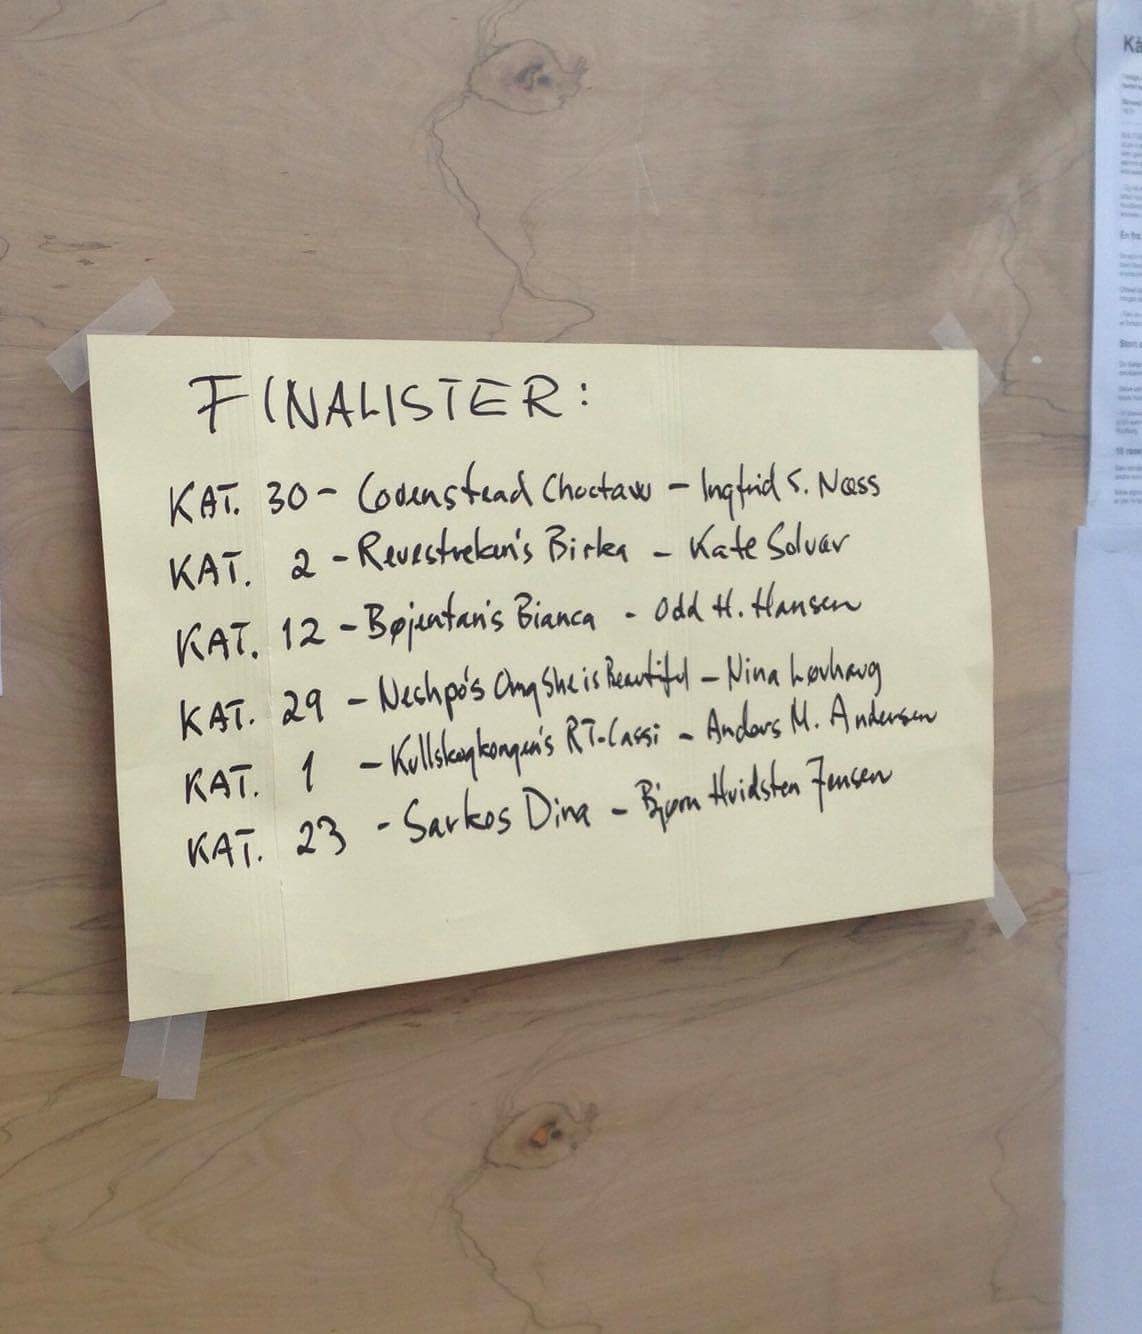 FINALISTER:
KAT. 30 - Covenstead Choctaw - Ingfrid S. Næss
KAT. 2 - Revestreken's Birka - Kate Solvær
KAT. 12 - Bøjentan's Bianca - Odd H. Hansen
KAT. 29 - Neshpo's Omg She is Beautiful - Nina Løvhaug
KAT. 1 - Kullskogkongen's RT-Cassi - Anders M. Andersen
KAT. 23 - Sarkos Dina - Bjørn Hvidsten Jensen